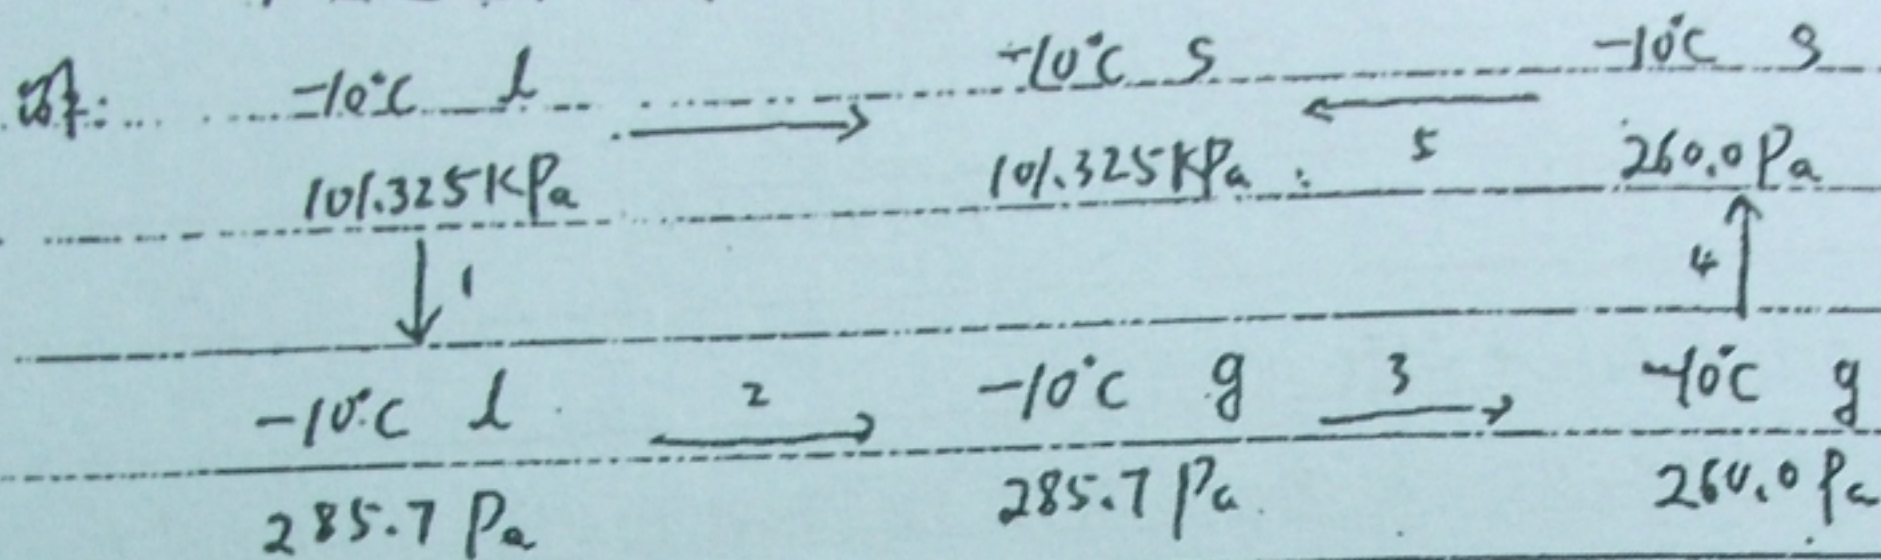 解: -10°C l → -10°C S -10°C S
101.325KPa 101.325KPa ← 5 260.0 Pa
↓ 1 4 ↑
-10°C l 2 → -10°C g 3 → -10°C g
285.7 Pa 285.7 Pa 260.0 Pa